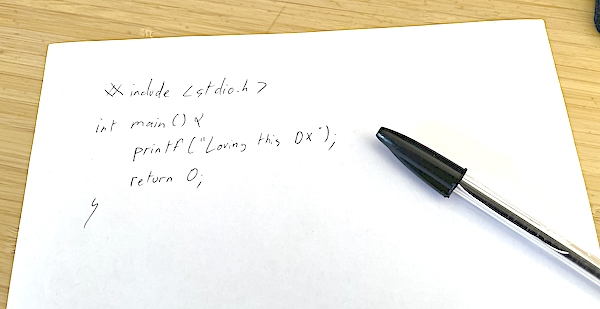 #include <stdio.h>
int main() {
printf("Loving this DX");
return 0;
}